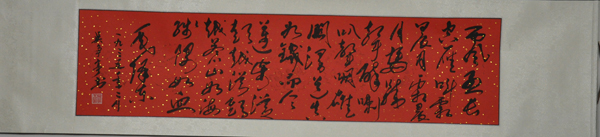 西风烈长
空雁叫霜
晨月霜晨
月马蹄
声碎喇
叭声咽雄
关漫道真
如铁而今
迈步从
头越从头
越苍山如海
残阳如血